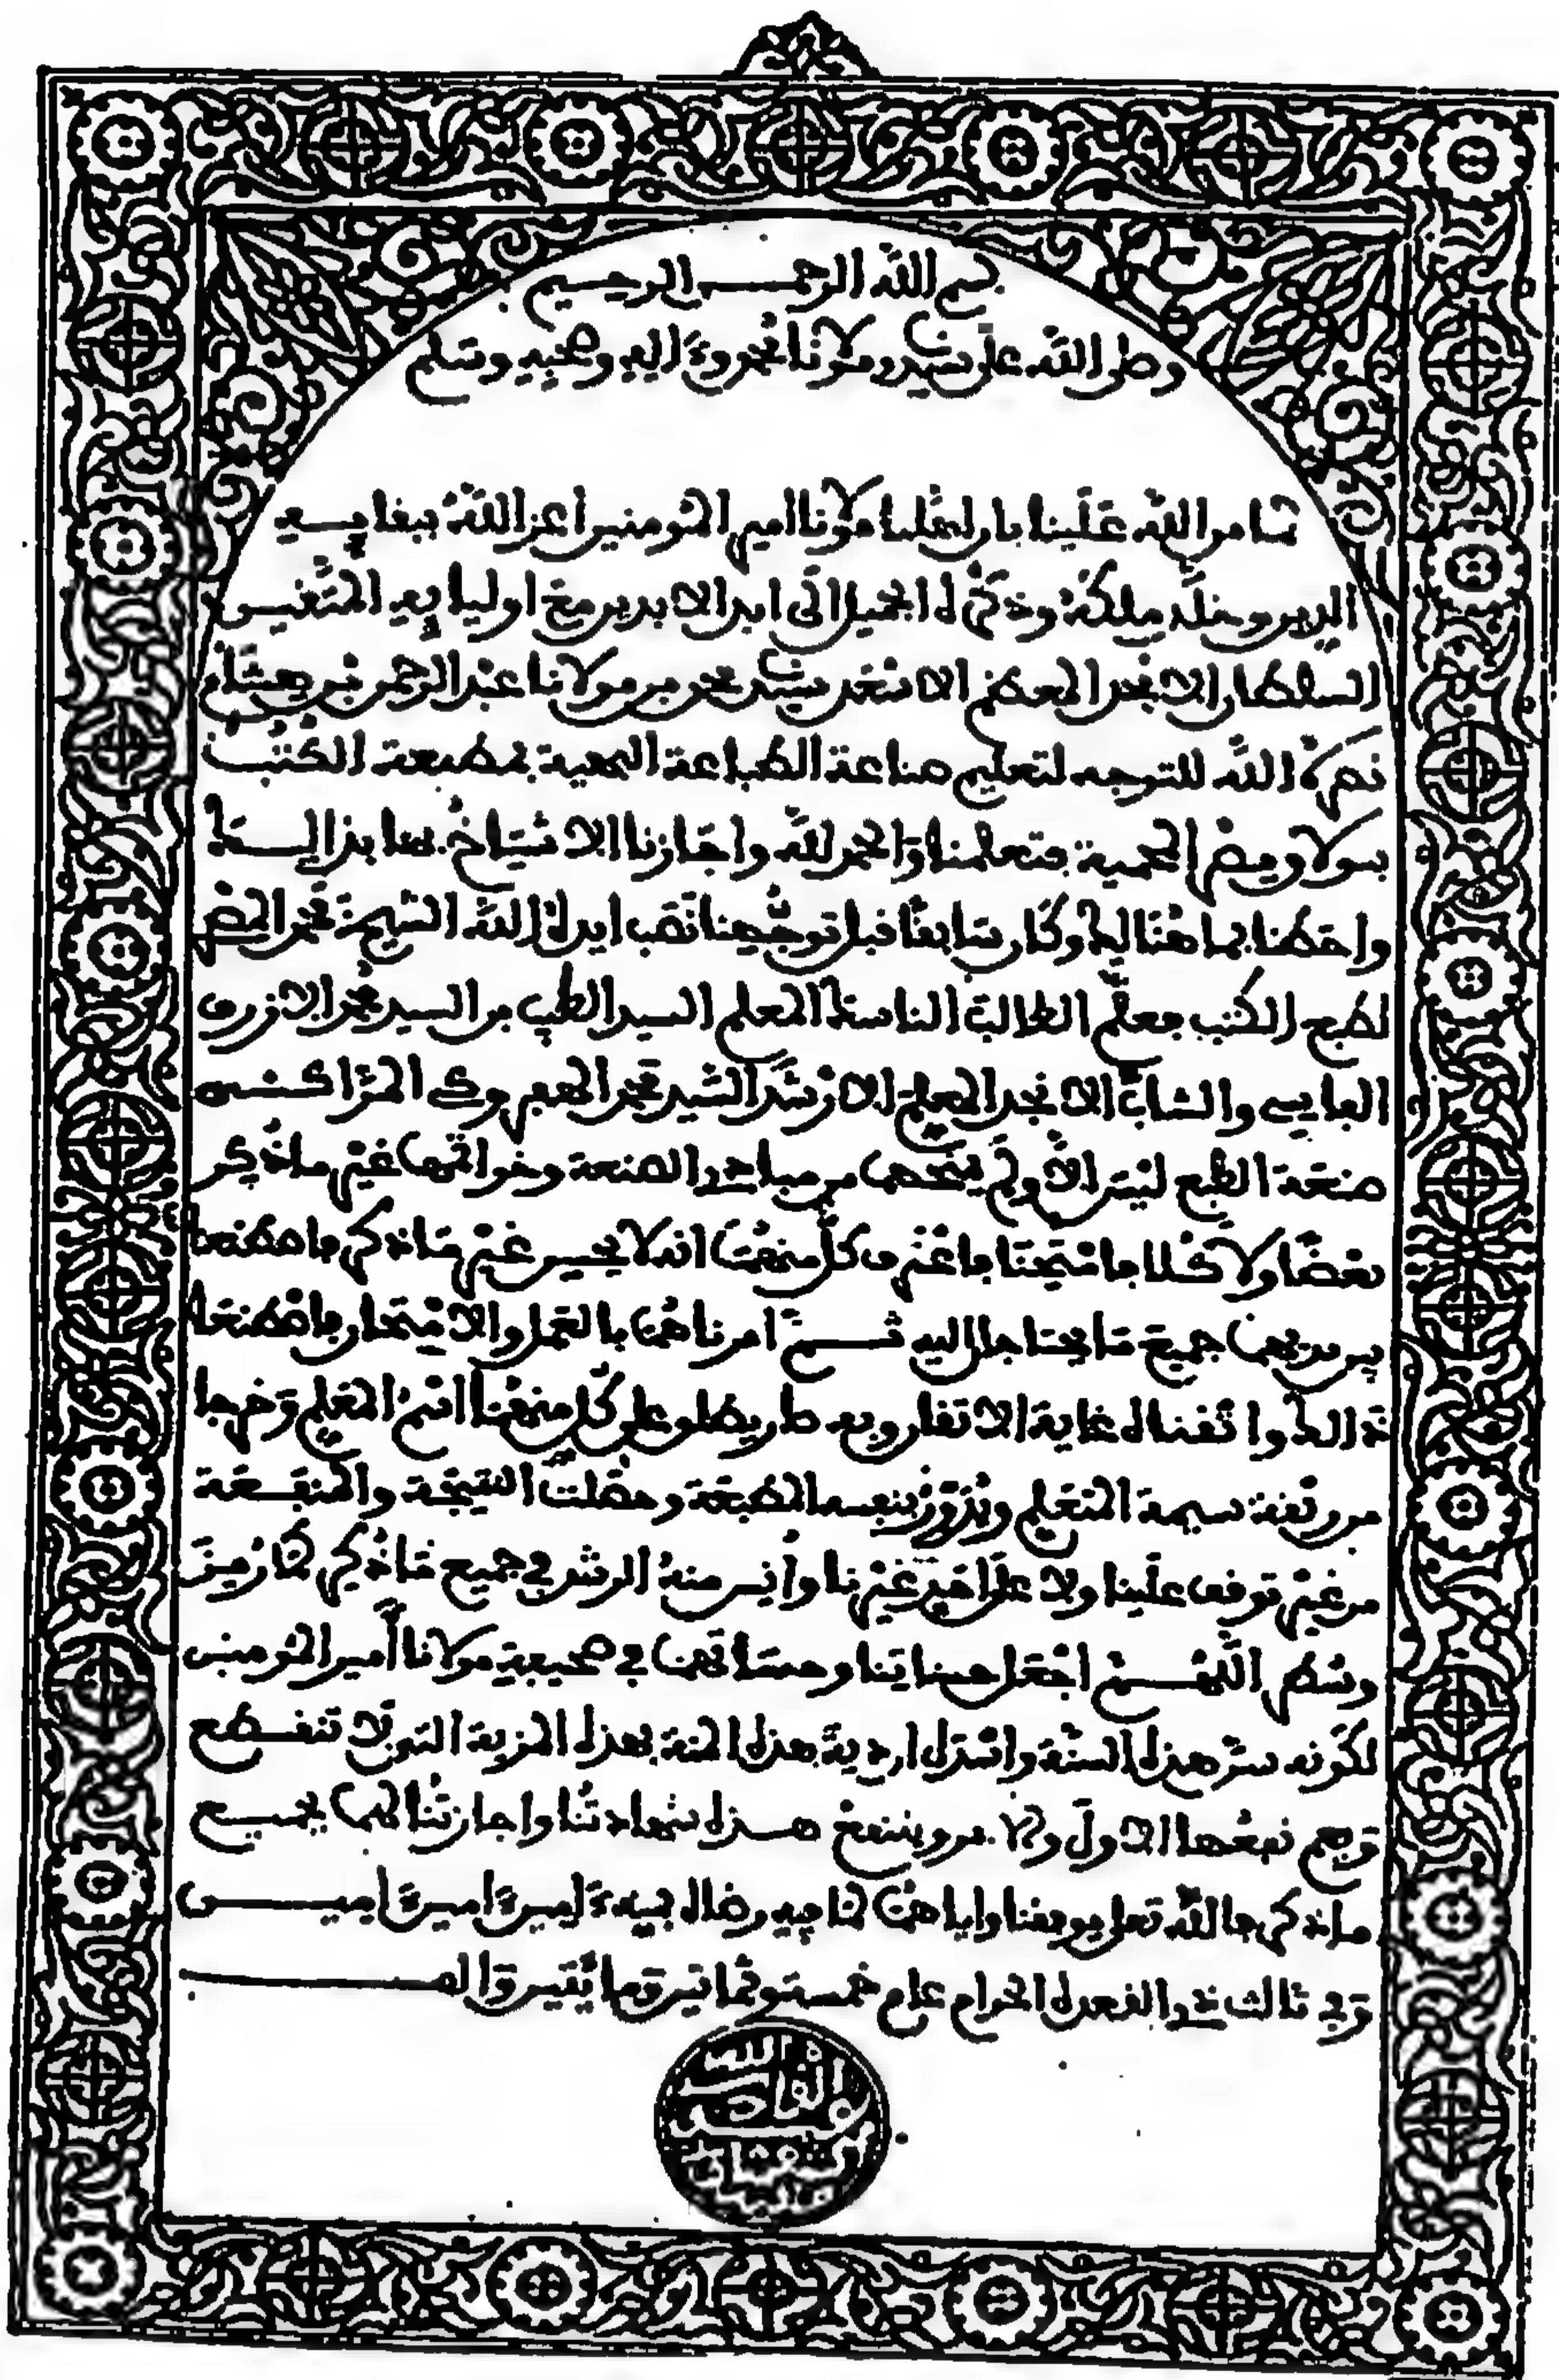 بسم الله الرحمن الرحيم
وصلى الله على سيدنا ومولانا محمد وءاله وصحبه وسلم
لما من الله علينا بان اهلنا مولانا امير المومنين اعز الله ببقايه
الدين وخلد ملكه وذكره الجميل الى ابد الابدين مع اوليايه المتقين
السلطان الافخر المعظم الاسعد سيدي محمد بن مولانا عبد الرحمن بن هشام
نصره الله للتوجه لتعليم صناعة الطباعة البهية بمطبعة الكتب
ببولاق مصر المحمية فتعلمنا والحمد لله واجازنا الاشياخ بها بذالك
واحطنا بما هنالك وكان سابقا قبل توجهنا نصب ايده الله الشيخ محمد المصري
لطبع الكتب فعلم الطالب الناسك المعلم السيد الطيب بن السيد محمد الازرق
الفاسي والشاب الانجد المعلم الارشد السيد محمد الهفروكي المراكشي
صنعة الطبع ليس الا ولم ينحهما من مبادي الصنعة وخواتمها غير ما ذكر
بعضا ولا كلا فامتحنا فاعترف كل منهما انه لا يحسن غير ما ذكر فاطلعنا
جميع ما يحتاجان اليه ثم امرناهما بالعمل والامتحان
ذالك واتقناه غاية الاتقان وبه صار يطلق على كل منهما اسم المعلم وخرجا
من ربقة سيمة المتعلم وبرز بنفسه المطبعة وحصلت النتيجة والمنفعة
من غير توقف علينا ولا على احد غيرنا وأنس منه الرشد في جميع ما ذكر
اللهم اجعل حسناتنا وحسناتهما في صحيفة مولانا أمير المومنين
لكونه سن هذه السنة واسدل اردية هذه المنة بهذه المزية التي لا تنقطع
ويعم نفعها الاول هذه شهادتنا واجازتنا لهما بجميع
ما ذكر فالله تعلى يوفقنا واياهما لما فيه رضاه ءامين ءامين ءامين
وفي ثالث ذي القعدة الحرام عام خمسة وثمانين ومائتين والف